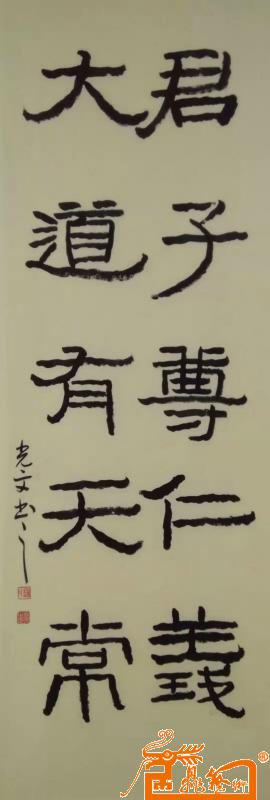 君子尊仁義
大道有天常
光文书